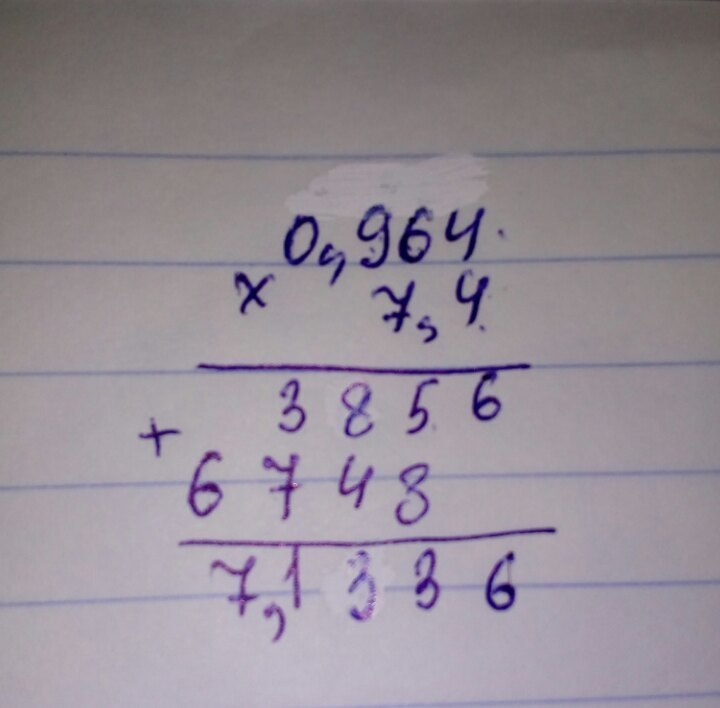 0,964
× 7,4
3856
+
6748
7,1336